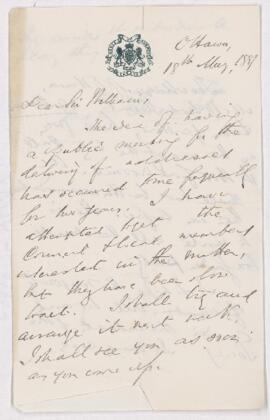 Ottawa,
18th May, 1887
Dear Sir William,
The idea of having
a public meeting for the
delivery of addresses
has occurred to me frequently
for two years. I have
attempted to get the
Council & local members
interested in the matter,
but they have been slow
I shall try and
arrange it next week
I shall see you as soon
as you come up.